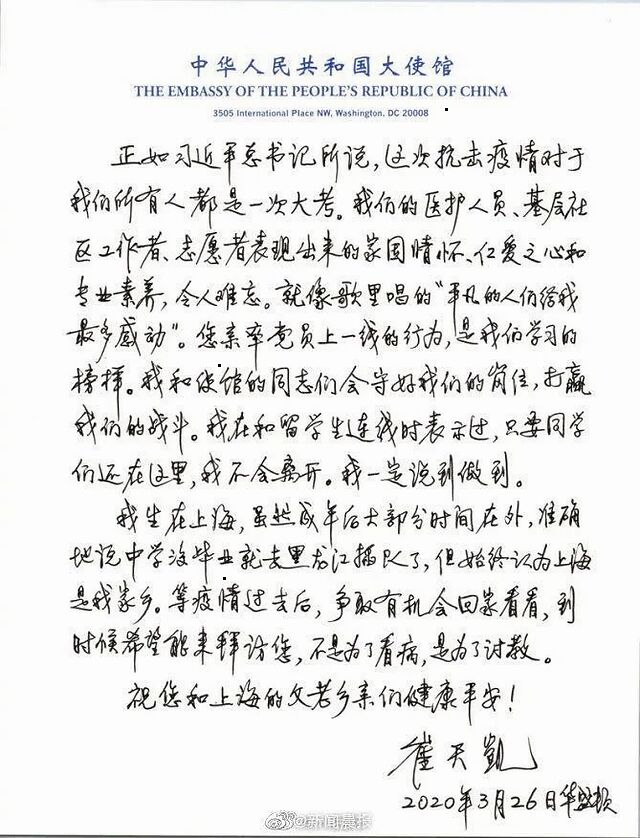 中华人民共和国大使馆
THE EMBASSY OF THE PEOPLE'S REPUBLIC OF CHINA
3505 International Place NW, Washington, DC 20008
正如习近平总书记所说，这次抗击疫情对于
我们所有人都是一次大考。我们的医护人员、基层社
区工作者、志愿者表现出来的家国情怀、仁爱之心和
专业素养，令人难忘。就像歌里唱的“平凡的人们给我
最多感动”。您亲率党员上一线的行为，是我们学习的
榜样。我和使馆的同志们会守好我们的岗位，打赢
我们的战斗。我在和留学生连线时表示过，只要同学
们还在这里，我不会离开。我一定说到做到。
我生在上海，虽然成年后大部分时间在外，准确
地说中学没毕业就去黑龙江插队了，但始终认为上海
是我家乡。等疫情过去后，争取有机会回家看看，到
时候希望能来拜访您，不是为了看病，是为了讨教。
祝您和上海的父老乡亲们健康平安！
崔天凯
2020年3月26日华盛顿
@新闻晨报